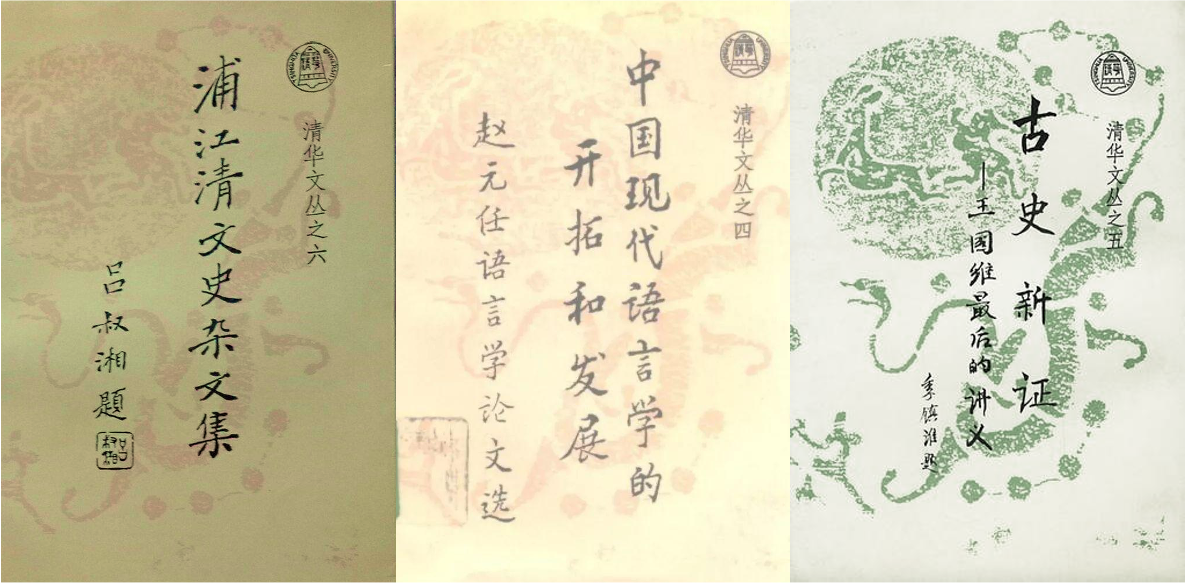 清华文丛之六
浦江清文史杂文集
吕叔湘题
清华文丛之四
中国现代语言学的
开拓和发展
赵元任语言学论文选
清华文丛之五
古史新证
—王国维最后的讲义
季镇淮题